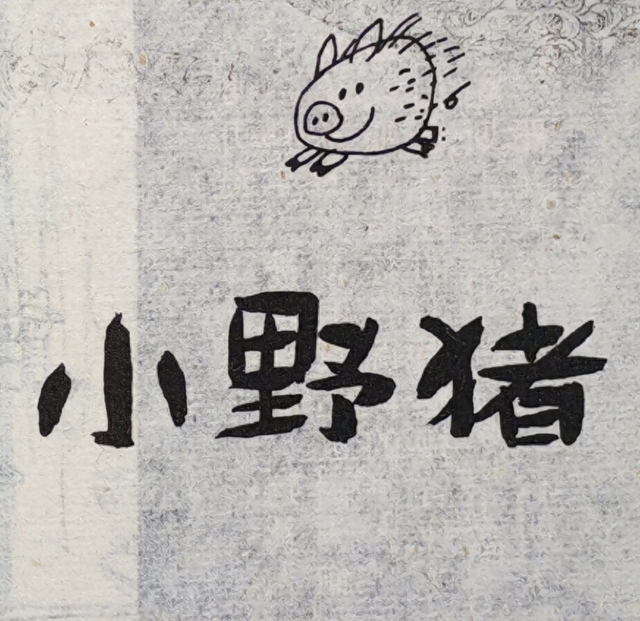 小野猪